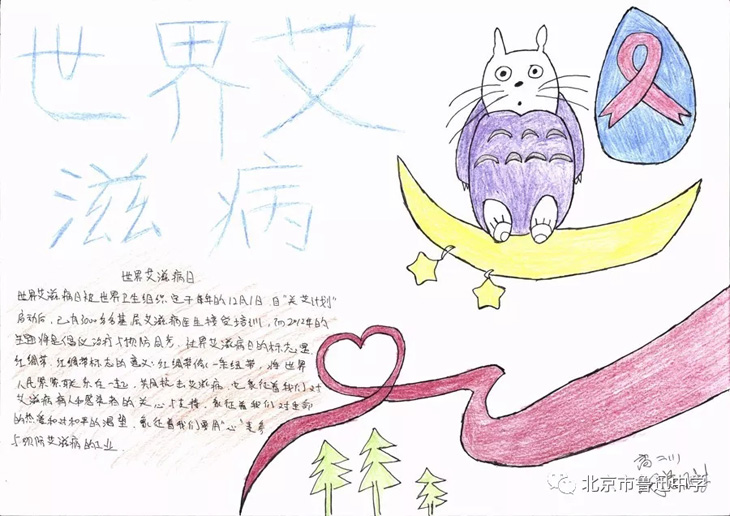 世界艾
滋病
世界艾滋病日
世界艾滋病日被世界卫生组织定于每年的12月1日，自“关艾计划”
启动后，已有3000多名基层艾滋病医生接受培训，而2012年的
主题将是倡议治疗与预防同步，世界艾滋病日的标志是
红绸带，红绸带标志的意义：红绸带像一条纽带，将世界
人民紧紧联系在一起，共同抗击艾滋病，它象征着我们对
艾滋病病人和感染者的关心与支持，象征着我们对生命
的热爱和对和平的渴望，象征着我们要用“心”来参
与预防艾滋病的工作
高二川
北京市鲁迅中学